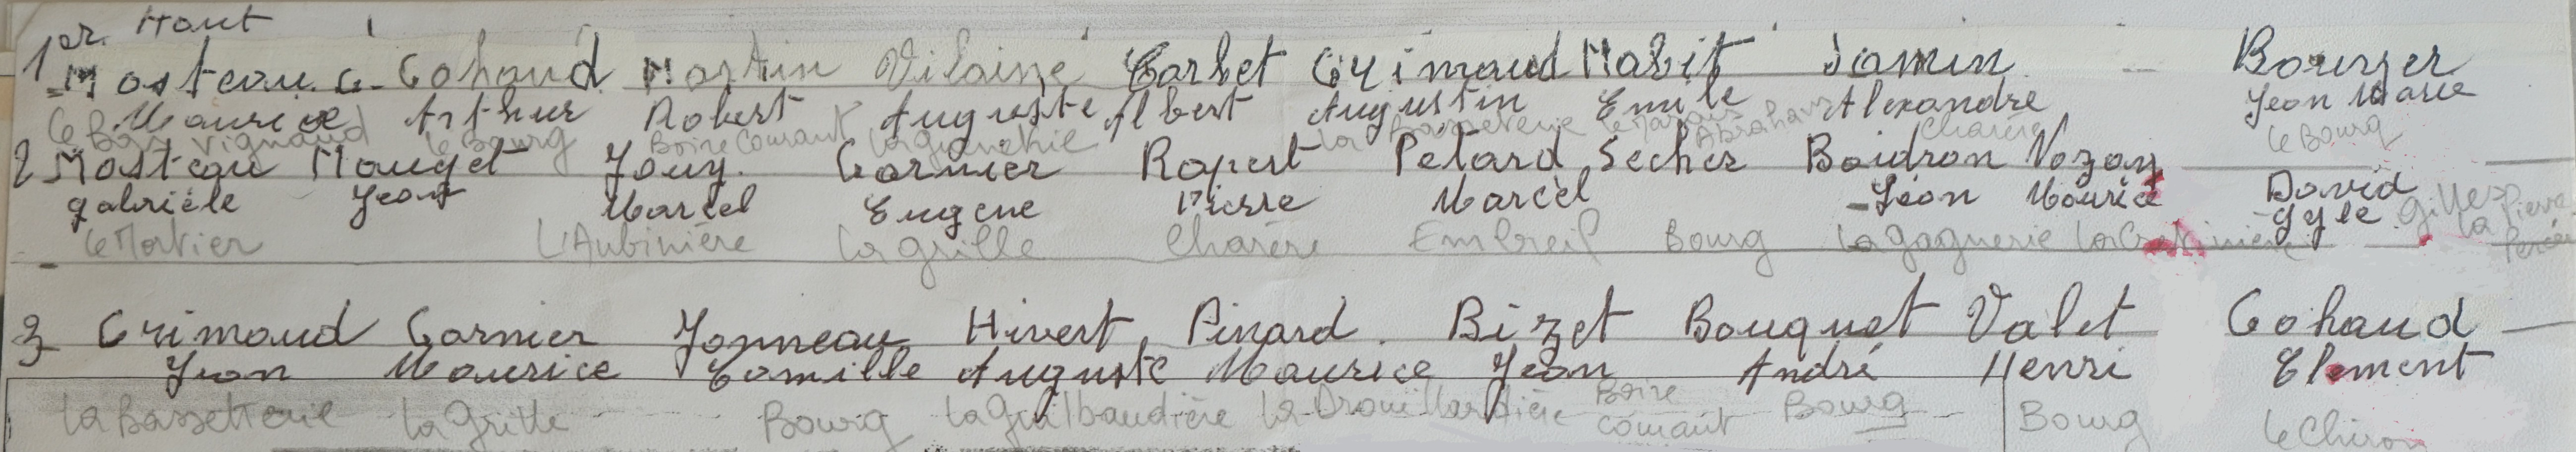 1er Haut
Mosteau G. Gohaud Martin Vilaine Barbet Grimaud Habit Jamin Bourger
Maurice Arthur Robert Auguste Albert Augustin Emile Alexandre Jean Marie
Le Bas Vignaud Le Bourg Boire Courant la la Bassetterie le Marais Abraham Charère Le Bourg
2 Mosteau Mouget Jouy. Garnier Ropert Petard Secher Boidron Vozon David
gabrièle Jean Marcel Eugène Pierre Marcel Léon Maurice Gyle Gilles
Le Mortier L'Aubinière La grille Charère Embreil Bourg La gagnerie la Pierre Percée
3 Grimaud Garnier Jonneau Hivert Pinard. Bizet Bouquet Valet Gohaud
Jean Maurice Camille Auguste Maurice Jean André Henri Clement
la Bassetterie la Grille Bourg la Guilbaudière la Drouillardière Boire Courant Bourg Bourg Le Chiron